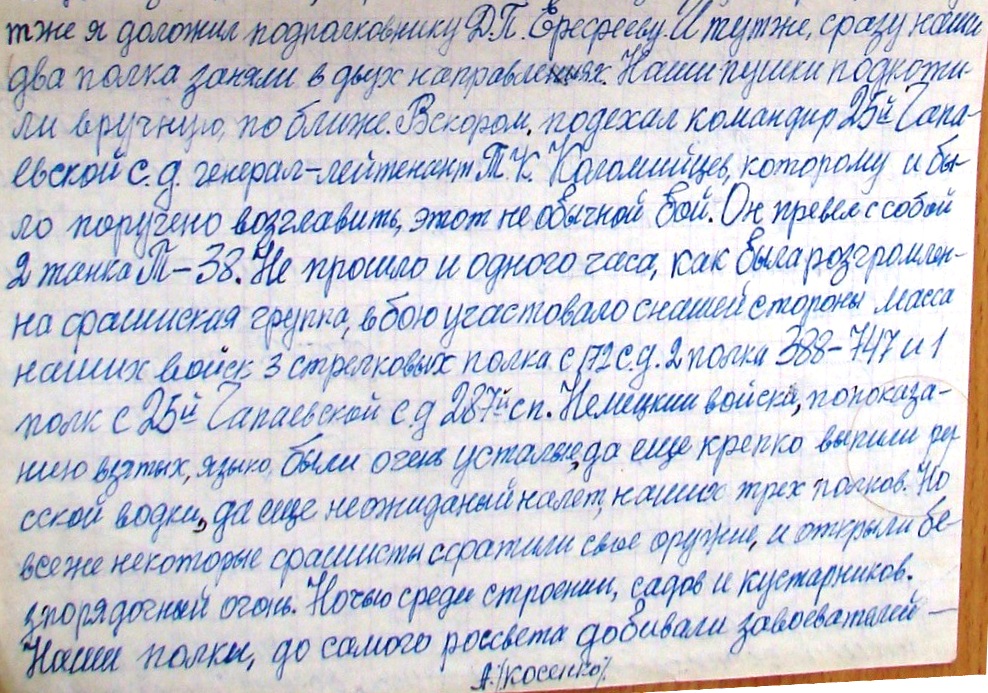 тже я доложил подполковнику Д.П. Ерефееву. И тут же, сразу наши
два полка заняли в двух направлениях. Наши пушки подкоти-
ли вручную, по ближе. Вскором, подехал командир 25й Чапа-
евской с.д. генерал-лейтенант Т.К. Коломийцев, которому и бы-
ло поручено возглавить, этот не обычной бой. Он превел с собой
2 танка Т-38. Не прошло и одного часа, как была розгромлен-
на фашиская группа, в бою участвовало с нашей стороны масса
наших войск 3 стрелковых полка с 172 с.д. 2 полка 388-747 и 1
полк с 25й Чапаевской с.д 287й сп. Немецкии войска, по показа-
нию взятых, языко были очень усталые, да еще крепко выпили ру
сской водки, да еще неожиданый налет, наших трех полков. Но
все же некоторые фашисты сфатили свое оружие, и открыли бе-
зпорядочный огонь. Ночью среди строении, садов и кустарников.
Наши полки, до самого россвета добивали завоевателей —
А. /Косенко/.